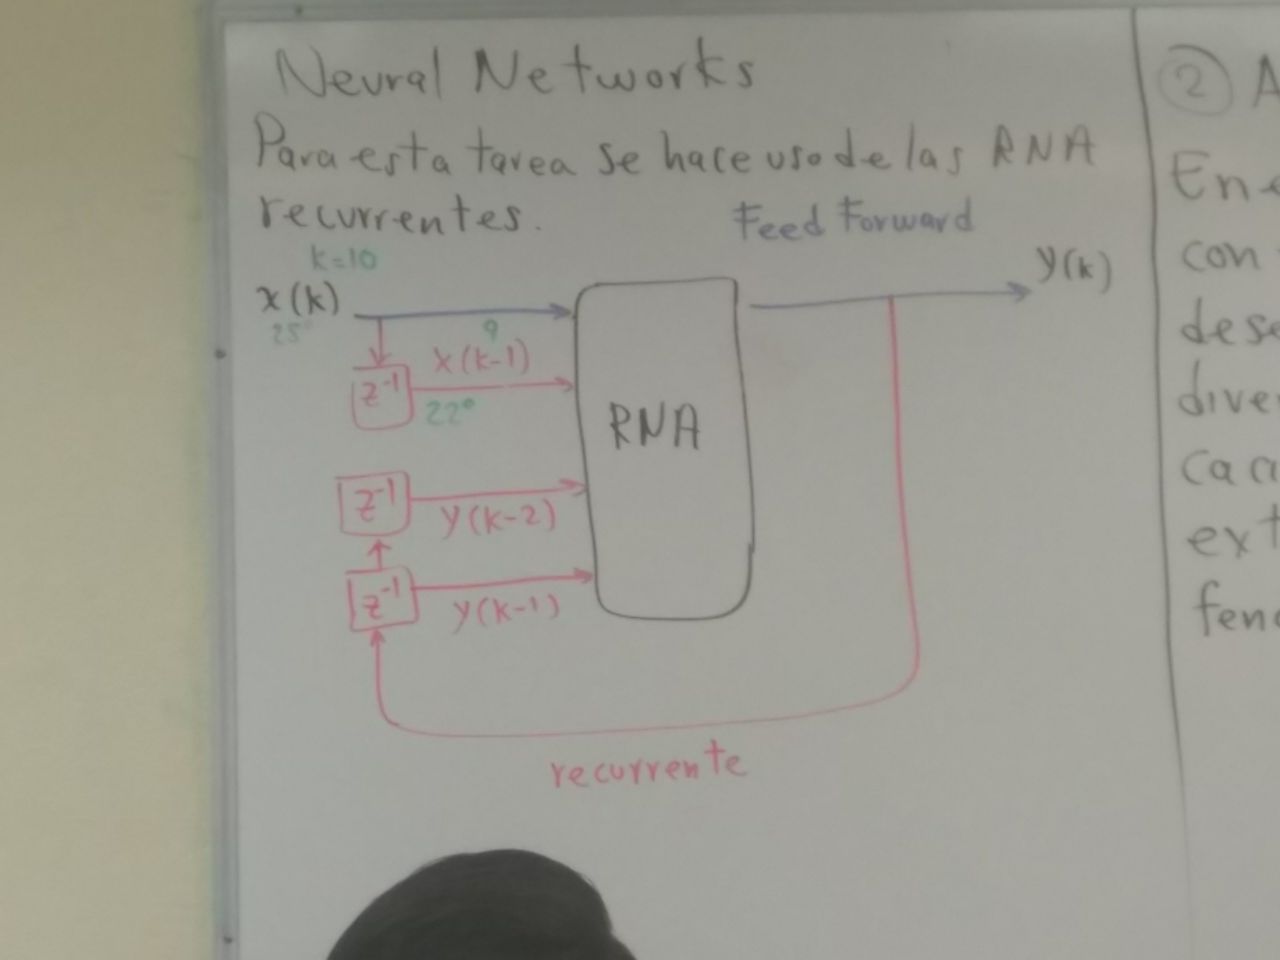 Neural Networks
Para esta tarea se hace uso de las RNA
recurrentes.
Feed Forward
k=10
x(k)
25°
y(k)
9
x(k-1)
z⁻¹
22°
RNA
z⁻¹
y(k-2)
z⁻¹
y(k-1)
recurrente
2 A
En
con
dese
dive
ca
ext
fen